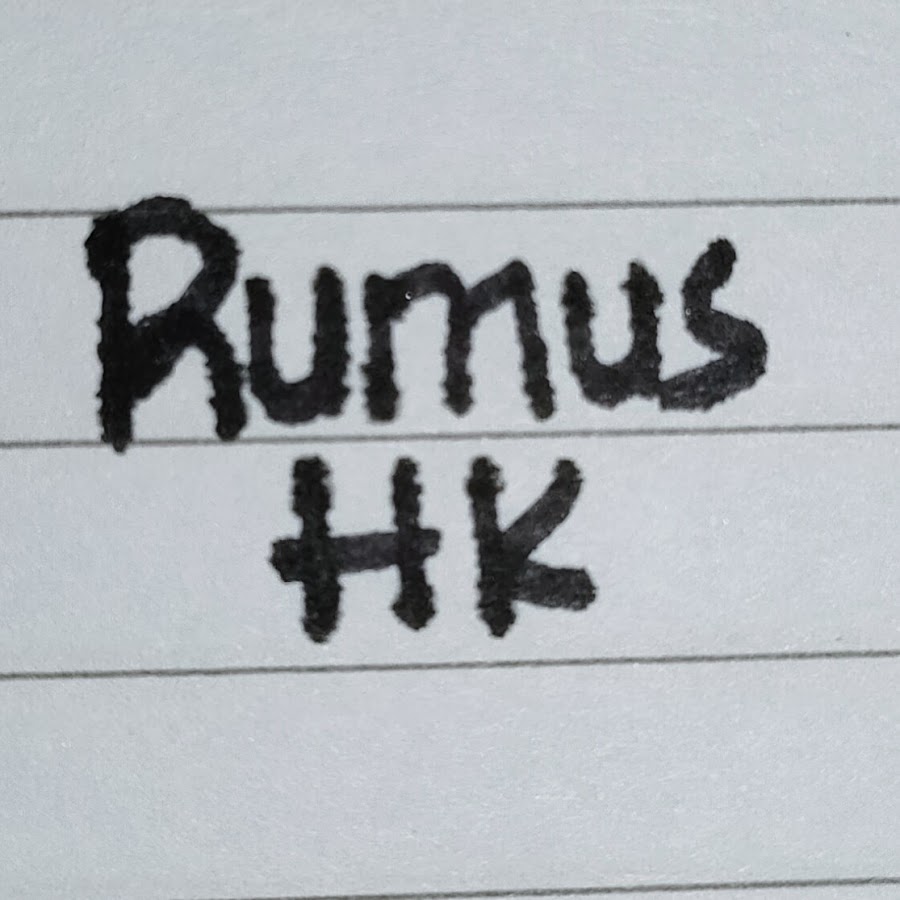 Rumus
HK